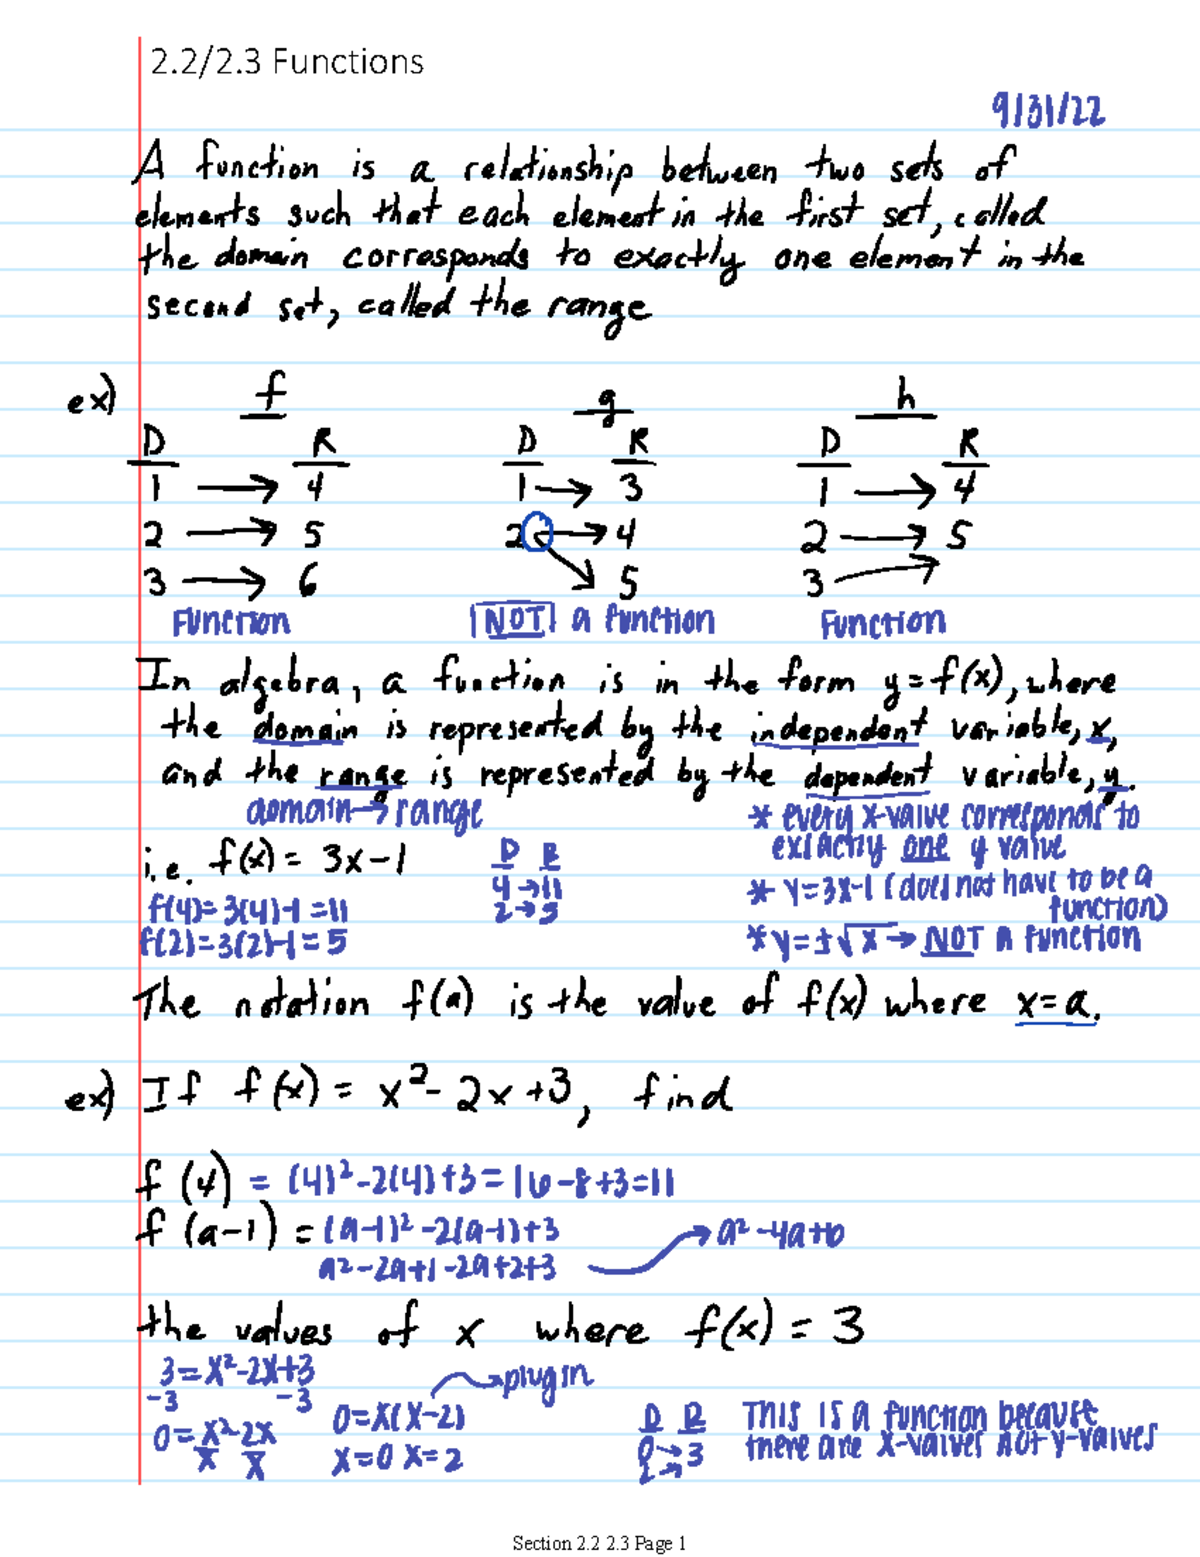 2.2/2.3 Functions
9/31/22
A function is a relationship between two sets of
elements such that each element in the first set, called
the domain corresponds to exactly one element in the
second set, called the range
ex) f g h
D R D R D R
1 → 4 1 → 3 1 → 4
2 → 5 2 → 4 2 → 5
3 → 6 5 3
Function NOT a function Function
In algebra, a function is in the form y = f(x), where
the domain is represented by the independent variable, x,
and the range is represented by the dependent variable, y.
domain → range
* every x-value corresponds to
exactly one y value
i.e. f(x) = 3x-1
D R
4 → 11
2 → 5
* y=3x-1 (does not have to be a
function)
f(4)=3(4)-1=11
f(2)=3(2)-1=5
* y=±√x → NOT A function
The notation f(a) is the value of f(x) where x=a.
ex) If f(x) = x²-2x+3, find
f(4) = (4)²-2(4)+3=16-8+3=11
f(a-1) = (a-1)²-2(a-1)+3
a²-2a+1-2a+2+3 → a²-4a+6
the values of x where f(x) = 3
3=x²-2x+3
-3 -3
0=x²-2x
x x
plug in
0=x(x-2)
x=0 x=2
D R
0→3
2→
This is a function because
there are x-values not y-values
Section 2.2 2.3 Page 1